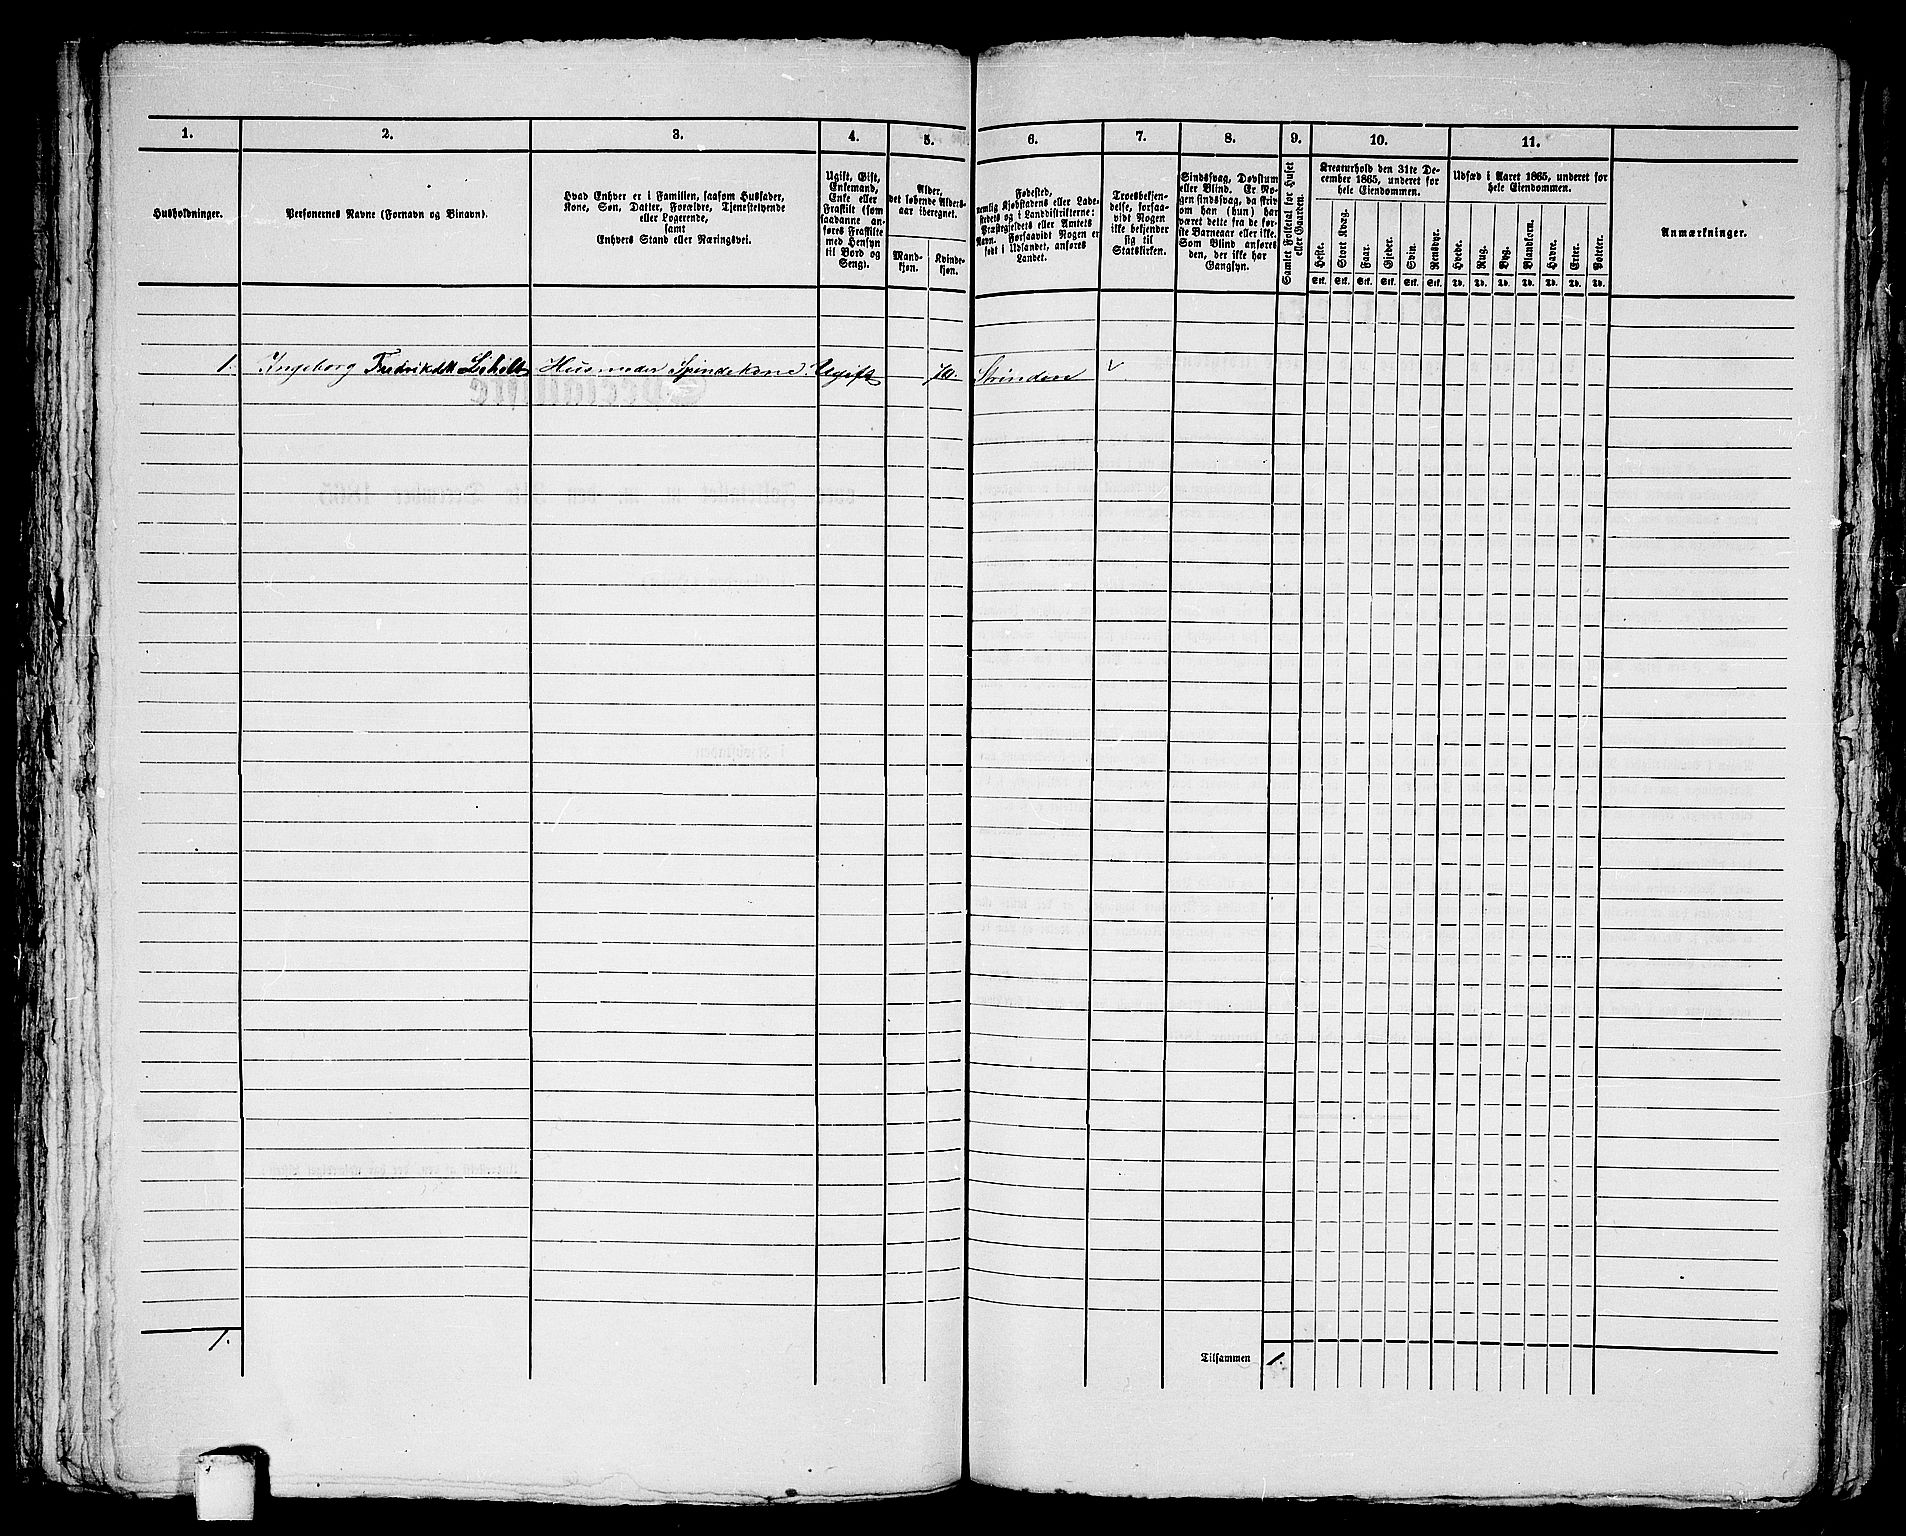 1. 2. 3. 4. 5. 6. 7. 8. 9. 10. 11.
Husholdninger.
Personernes Navne (Fornavn og Binavn).
Hvad Enhver er i Familien, saasom Husfader,
Kone, Søn, Datter, Forældre, Tjenestetyende
eller Logerende,
samt
Enhvers Stand eller Næringsvei.
Ugift, Gift,
Enkemand,
Enke eller
Fraskilt (som
saadanne an-
føres Fraskilte
med Hensyn
til Bord og
Seng).
Alder,
det løbende Alders-
aar iberegnet.
Mand-
kjøn.
Kvinde-
kjøn.
Fødested,
nemlig Kjøbstadens eller Lade-
stedets og i Landdistrikterne:
Præstegjeldets eller Amtets
Navn. Forsaavidt Nogen er
født i Udlandet, anføres
Landet.
Troesbekjen-
delse, forsaa-
vidt Nogen
ikke bekjender
sig til
Statskirken.
Sindssvag, Døvstum
eller Blind. Er No-
gen sindssvag, da skriv
om han (hun) har
været dette fra de før-
ste Barneaar eller ikke.
Som Blind anføres
den, der ikke har
Gangsyn.
Samlet Folketal for Huset
eller Gaarden.
Kreaturhold den 31te De-
cember 1865, underet for
hele Eiendommen.
Heste. Stort Kvæg. Faar. Gjeder. Svin. Rensdyr.
Stk. Stk. Stk. Stk. Stk. Stk.
Udsæd i Aaret 1865, underet for
hele Eiendommen.
Hvede. Rug. Byg. Blandkorn. Havre. Erter. Poteter.
Td. Td. Td. Td. Td. Td. Td.
Anmærkninger.
1. Ingeborg Fredrikdtt Husmoder Spindekone Ugift Strinden
1.
Tilsammen 1.